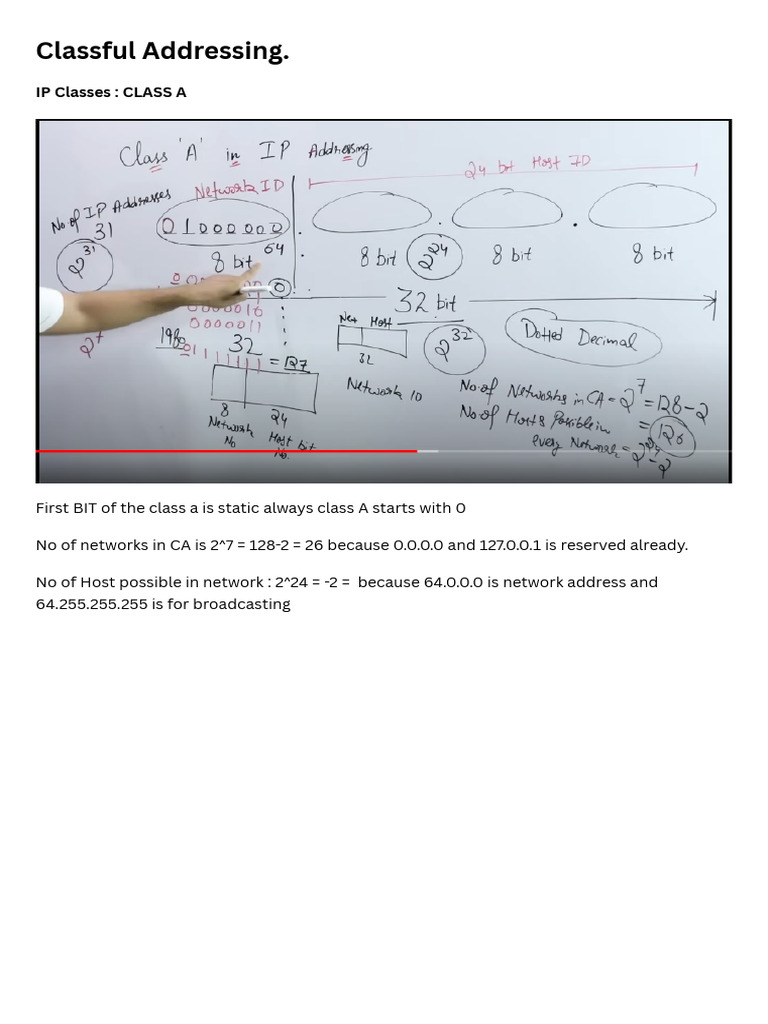 Classful Addressing.
IP Classes : CLASS A
Class 'A' in IP Addressing
24 bit Host ID
Network ID
No of IP Addresses
31
2^31
01000000
64
8 bit
8 bit
2^24
8 bit
8 bit
0
0000010
0000011
2^7
1980
32
01111111 = 127
32 bit
Net Host
32
2^32
Dotted Decimal
8
Network
No
24
Host bit
No.
Network ID
No. of Networks in CA = 2^7 = 128-2
= 126
No. of Hosts Possible in
every Network = 2^24-2
First BIT of the class a is static always class A starts with 0
No of networks in CA is 2^7 = 128-2 = 26 because 0.0.0.0 and 127.0.0.1 is reserved already.
No of Host possible in network : 2^24 = -2 =  because 64.0.0.0 is network address and
64.255.255.255 is for broadcasting